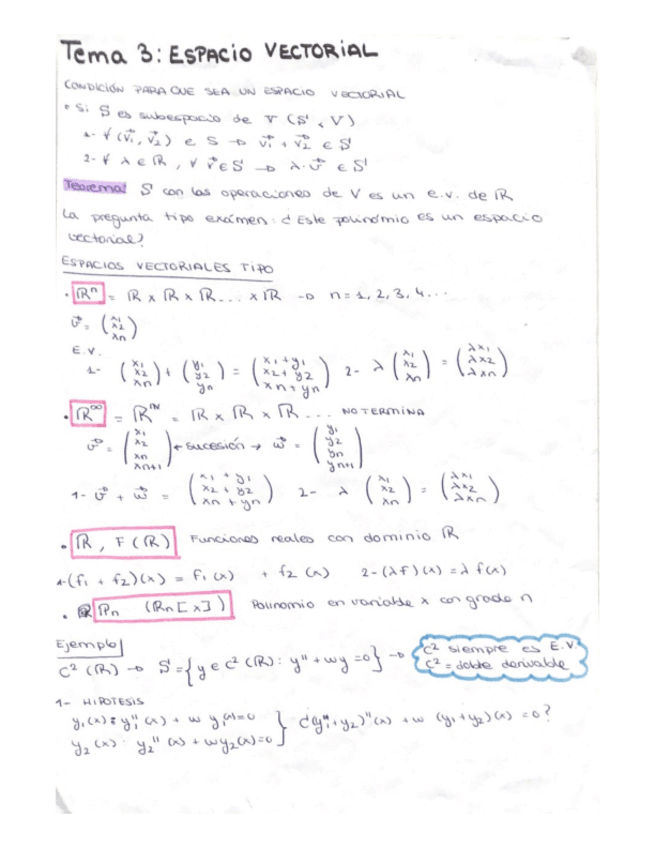 Tema 3: ESPACIO VECTORIAL
CONDICIÓN PARA QUE SEA UN ESPACIO VECTORIAL
• Si S es subespacio de V (S, V)
1- ∀ (v₁, v₂) ∈ S → v₁ + v₂ ∈ S
2- ∀ λ ∈ ℝ, ∀ v ∈ S → λ · v ∈ S
Teorema: S con las operaciones de V es un e.v. de ℝ
La pregunta tipo exámen: ¿Este polinómio es un espacio
vectorial?
ESPACIOS VECTORIALES TIPO
• ℝⁿ = ℝ x ℝ x ℝ... x ℝ → n = 1, 2, 3, 4...
v = (x₁ x₂ xn)
E.V.
1- (x₁ x₂ xn) + (y₁ y₂ yn) = (x₁+y₁ x₂+y₂ xn+yn) 2- λ (x₁ x₂ xn) = (λx₁ λx₂ λxn)
• ℝ^∞ = ℝ^ℕ = ℝ x ℝ x ℝ... NO TERMINA
v = (x₁ x₂ xn xn+1) ← sucesión → w = (y₁ y₂ yn yn+1)
1- v + w = (x₁+y₁ x₂+y₂ xn+yn) 2- λ (x₁ x₂ xn) = (λx₁ λx₂ λxn)
• ℝ, F(ℝ) Funciones reales con dominio ℝ
1-(f₁ + f₂)(x) = f₁(x) + f₂(x) 2-(λf)(x) = λ f(x)
• ℙn (ℝn[x]) Polinomio en variable x con grado n
Ejemplo
C²(ℝ) → S = {y ∈ C²(ℝ): y'' + wy = 0} → C² siempre es E.V.
C² = doble derivable
1- HIPOTESIS
y₁(x): y₁''(x) + w y₁(x) = 0 } ¿(y₁+y₂)''(x) + w (y₁+y₂)(x) = 0?
y₂(x): y₂''(x) + wy₂(x) = 0